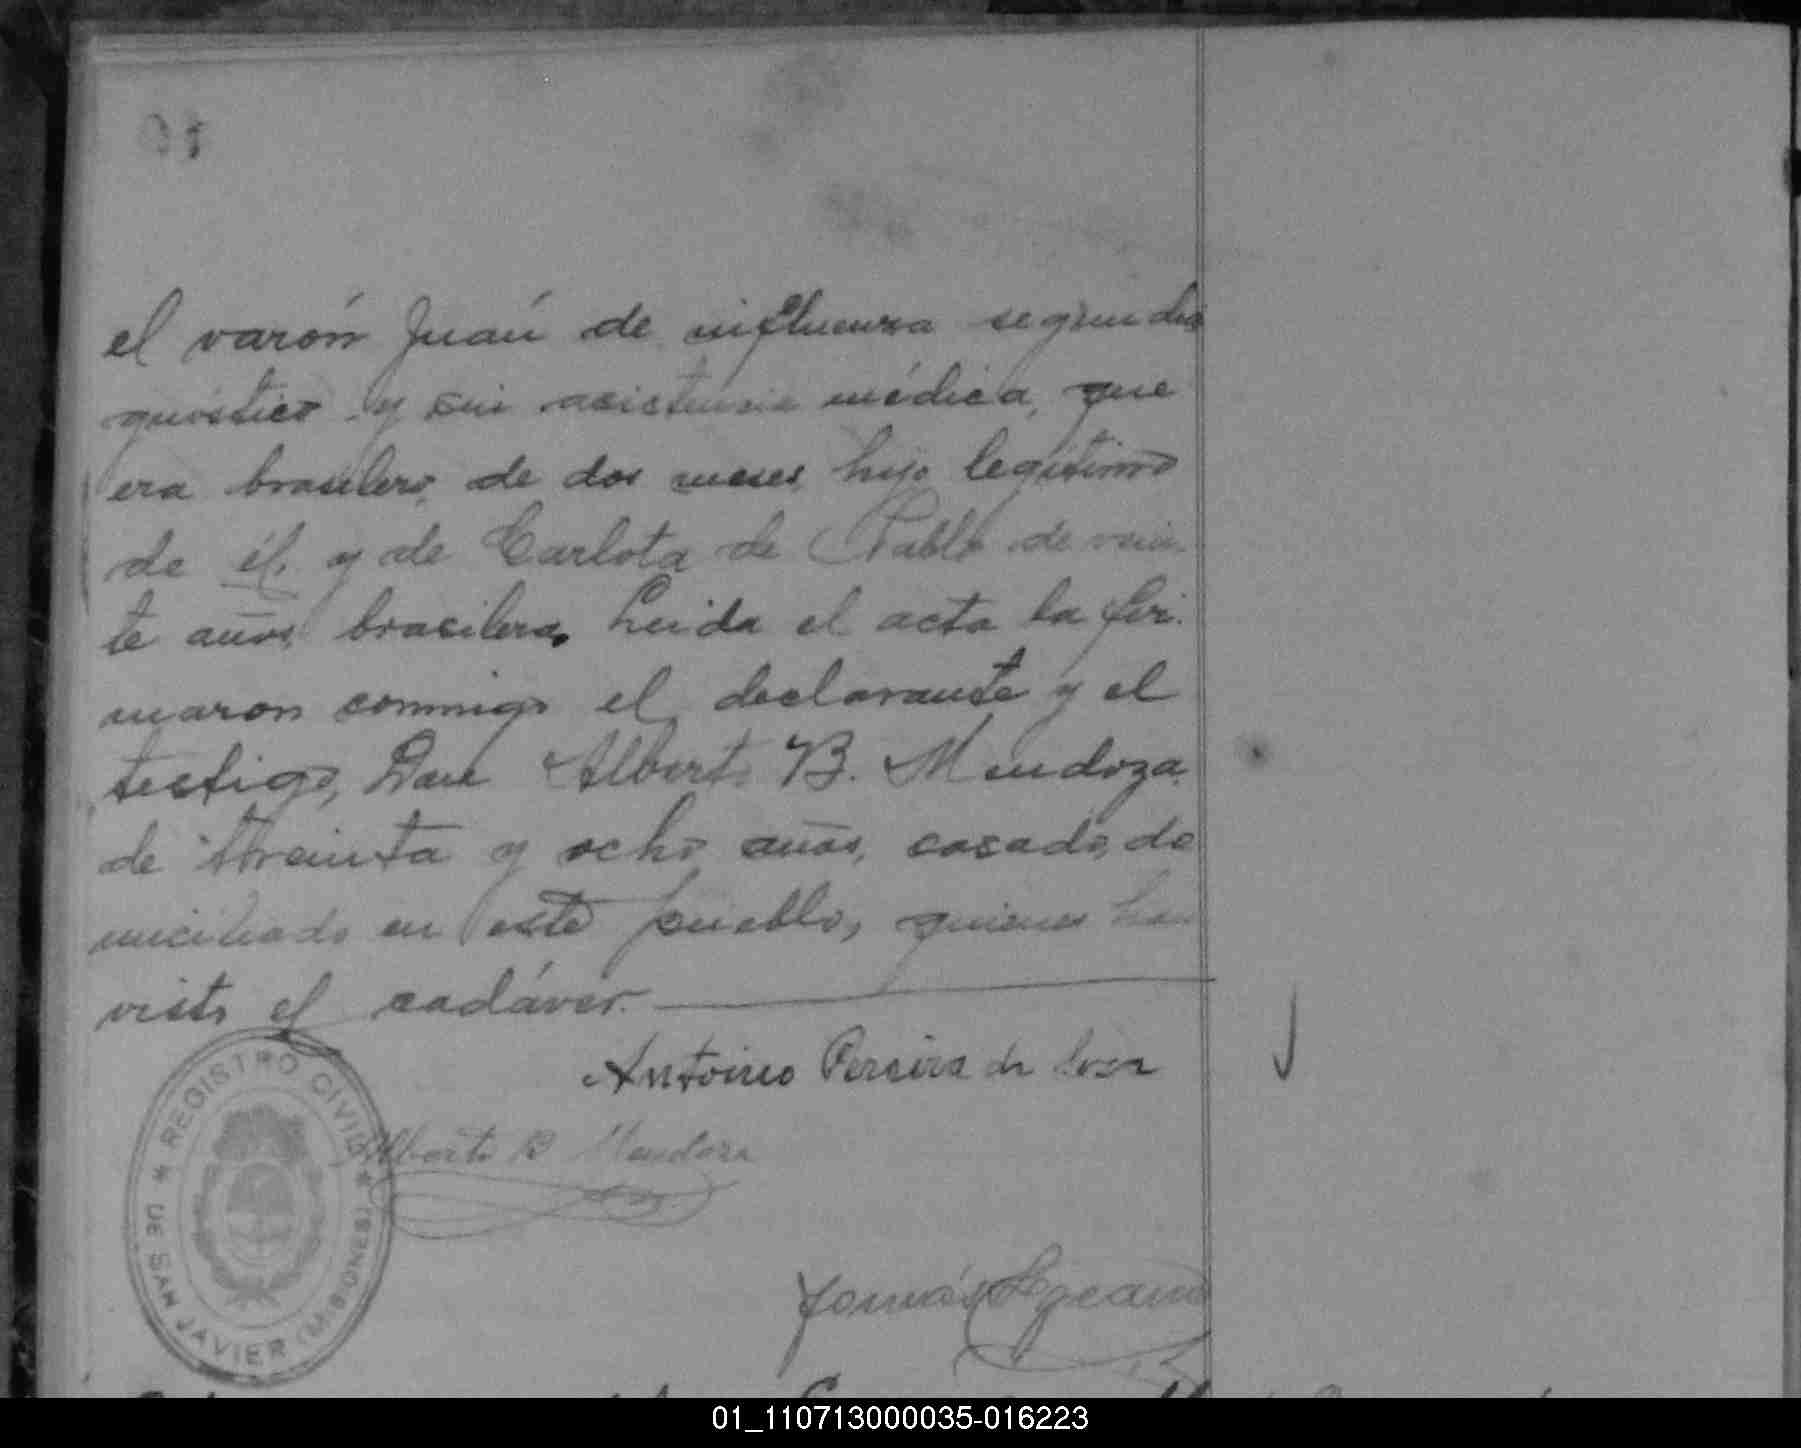 el varón Juán de influenza segun diag
nóstico y sin asistencia médica, que
era brasilero, de dos meses, hijo legítimo
de él, y de Carlota de Pablo de vein-
te años, brasilera. Leida el acta la fir-
maron conmigo el declarante y el
testigo, Don Alberto B. Mendoza,
de treinta y ocho años, casado, do
miciliado en este pueblo, quienes han
visto el cadáver.
Antoino Pereira da
Alberto B Mendoza
Tomás
REGISTRO CIVIL
DE SAN JAVIER (MISIONES)
01_110713000035-016223